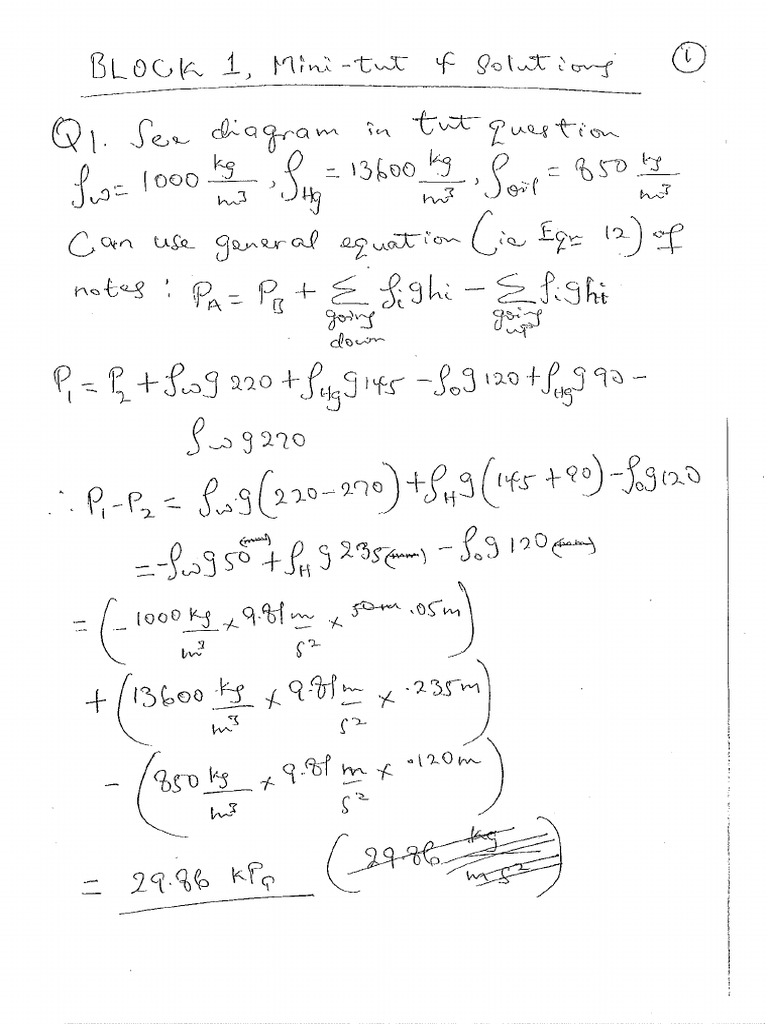 BLOCK 1, Mini-tut & Solutions ①
Q1. See diagram in tut question
ρw = 1000 kg/m³, ρHg = 13600 kg/m³, ρoil = 850 kg/m³
Can use general equation (ie Eqn 12) of
notes: PA = PB + Σ ρighi - Σ ρighi
going down going up
P₁ = P₂ + ρwg 220 + ρHg g 145 - ρog 120 + ρHg g 90 -
ρwg 270
∴ P₁-P₂ = ρwg(220-270) + ρHg(145 + 90) - ρog 120
= -ρwg 50 (mm) + ρHg 235 (mm) - ρog 120 (mm)
= (-1000 kg/m³ × 9.81 m/s² × 50m .05m)
+ (13600 kg/m³ × 9.81 m/s² × .235m)
- (850 kg/m³ × 9.81 m/s² × .120m)
= 29.86 kPa (29.86 kg/ms²)